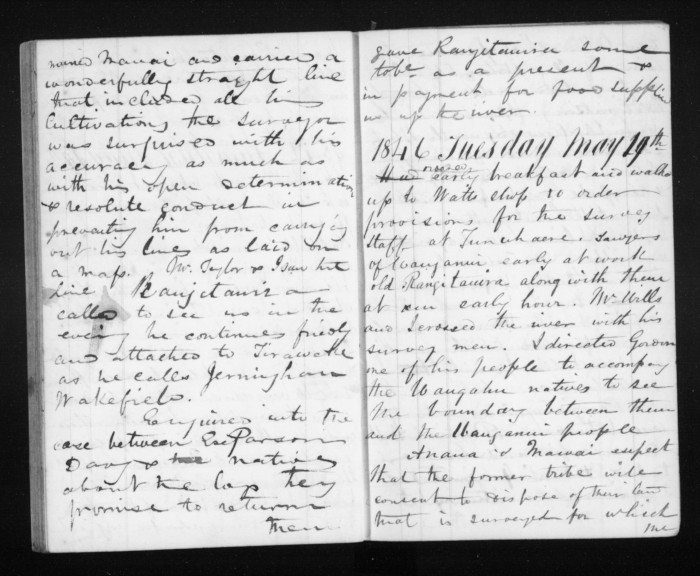 named Mawai and carried a
wonderfully straight line
that included all his
Cultivations the surveyor
was surprised with his
accuracy as much as
with his open determination
& resolute conduct in
preventing him from carrying
out his lines as laid on
a map. Mr. Taylor & I saw the
line Rangitauira
called to see us in the
evening he continues friendly
and attached to Tirawake
as he calls Jerningham
Wakefield.
Enquired into the
case between Ex Parson
Davy & the natives
about the logs they
promise to return
them
gave Rangitauira some
tobc. as a present &
in payment for food supplied
us up the river.
1846 Tuesday May 19th
Had early breakfast and walked
up to Watts shop to order
provisions for the survey
staff at Tunuhaere. Sawyers
of Wanganui early at work
old Rangitauira along with them
at an early hour. Mr Wills
and I crossed the river with his
survey men. I directed Governor
one of his people to accompany
the Wangaehu natives to see
the boundary between them
and the Wanganui people
Anaua & Mawai expect
that the former tribe will
consent to dispose of their land
that is surveyed for which
the